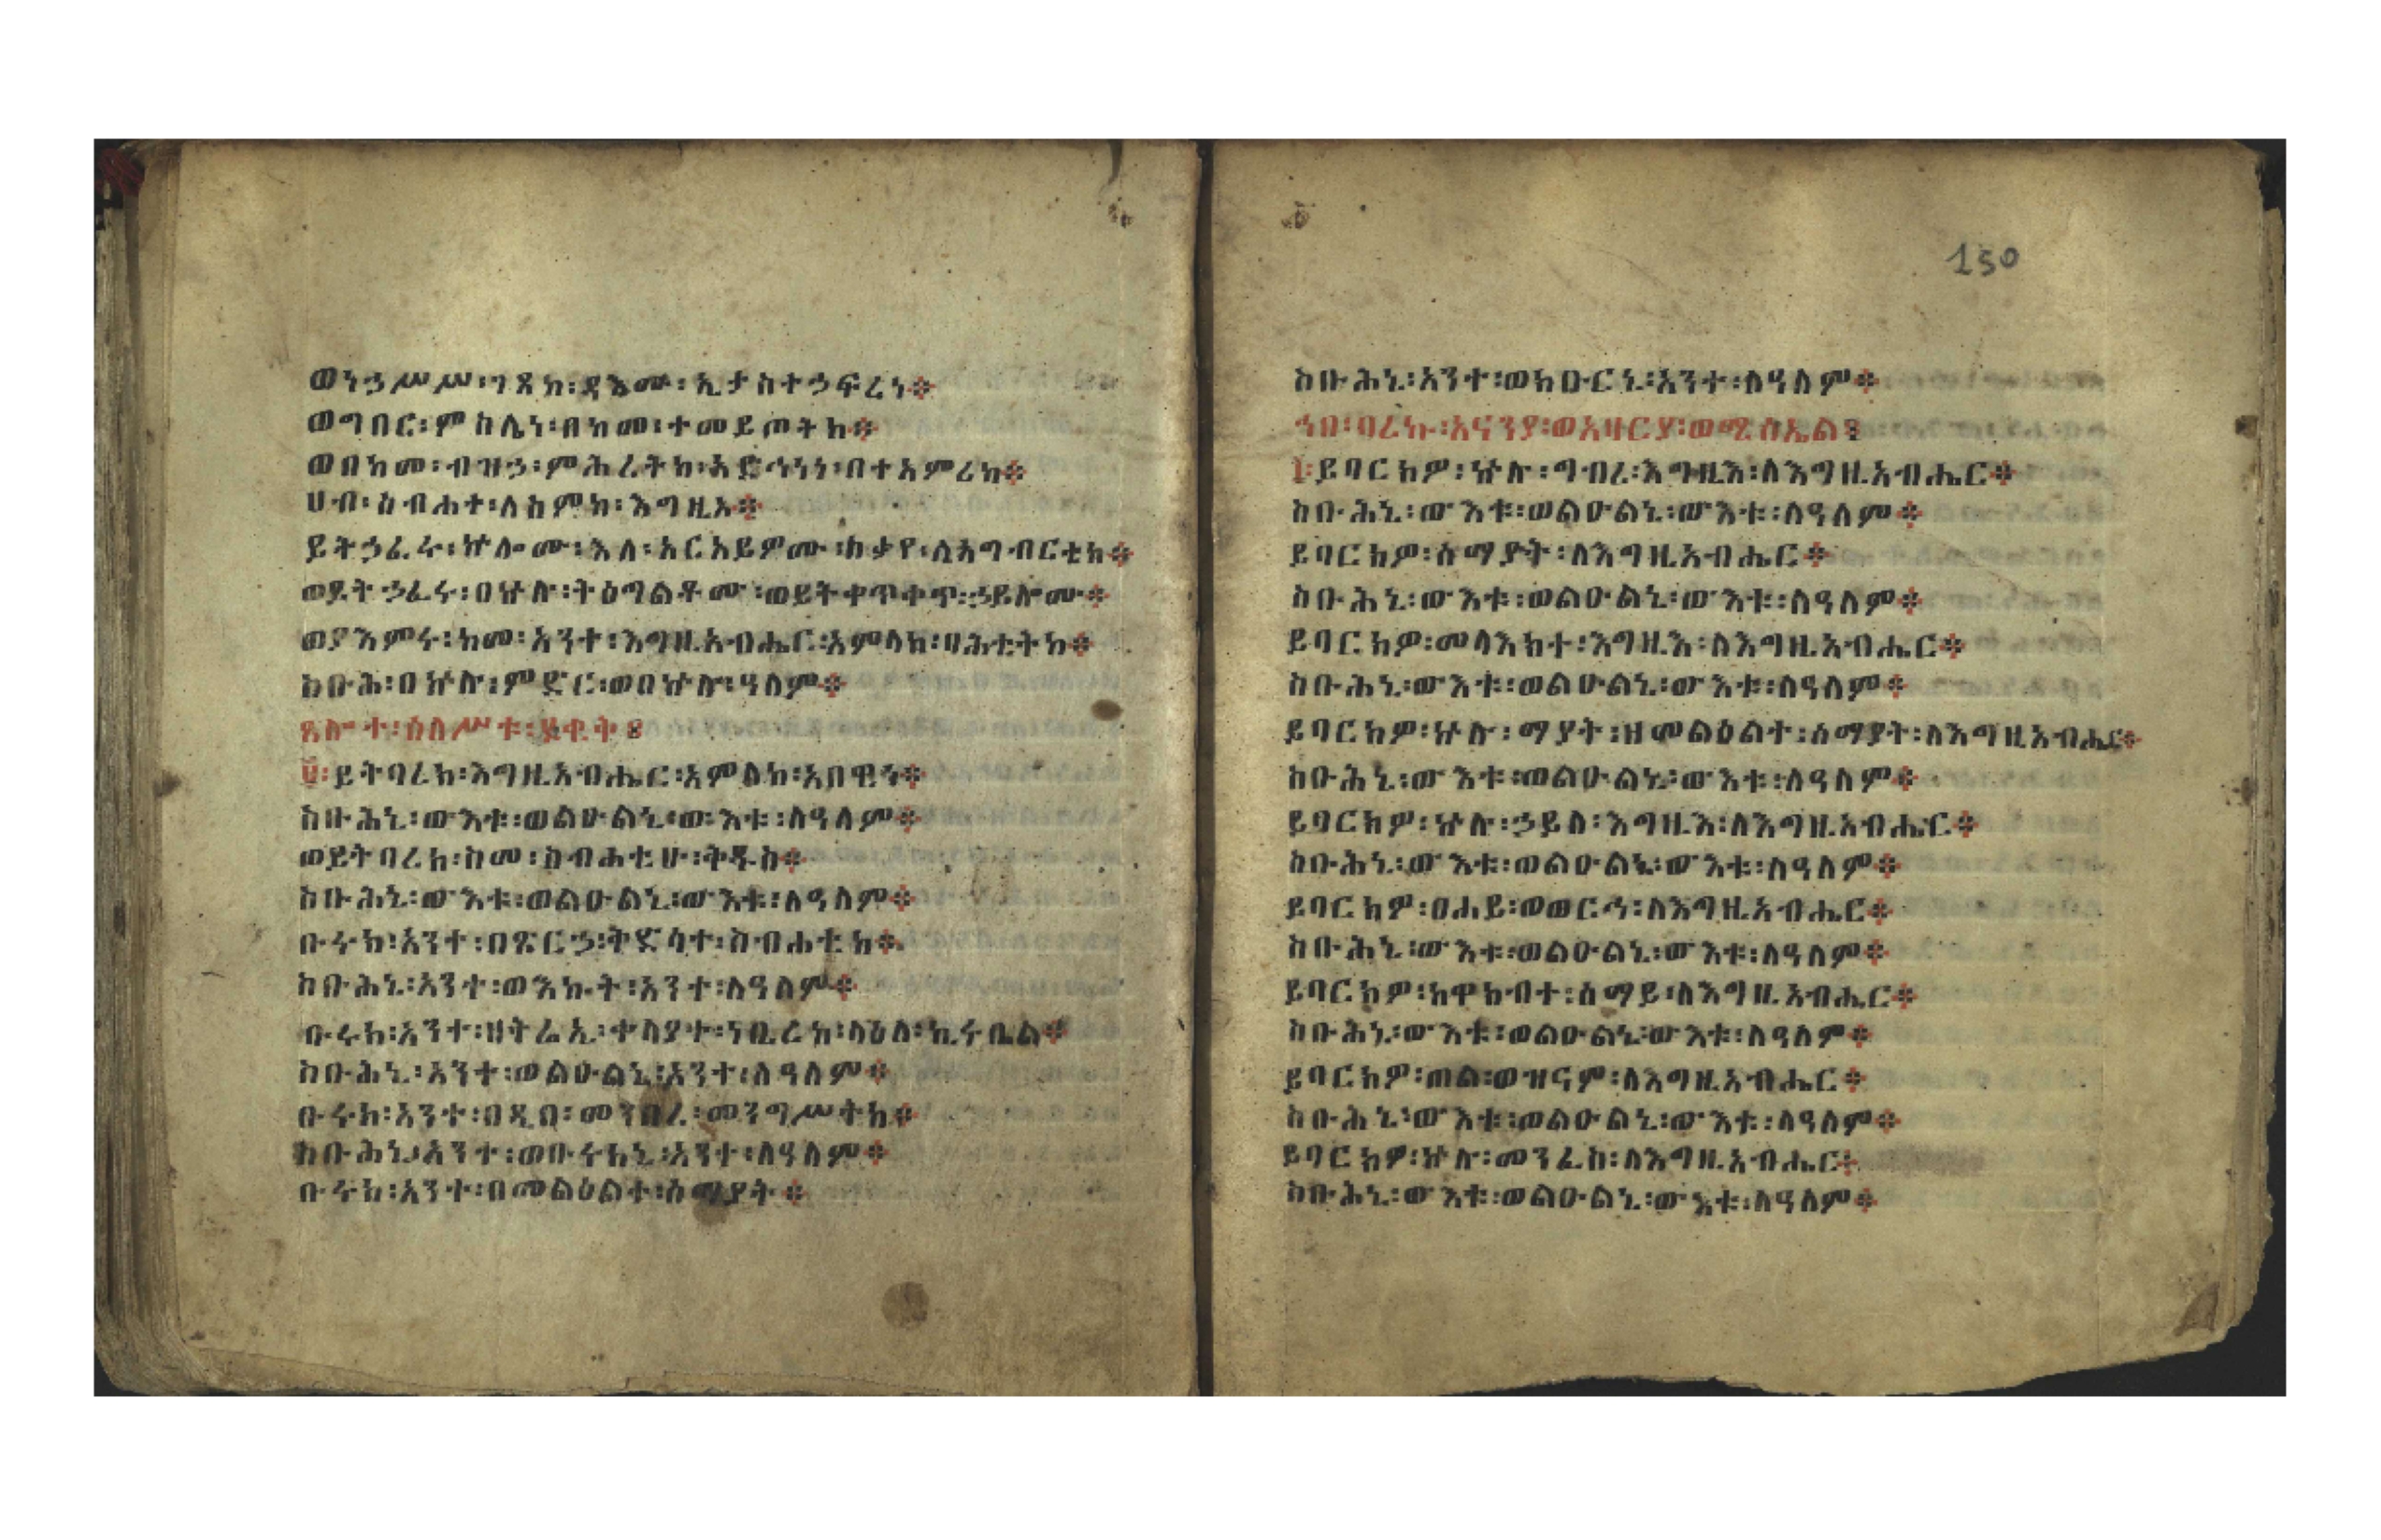 ወነኃሥሥ፡ገጸከ፡ዳእሙ፡ኢታስተኃፍረነ።
ወግበር፡ምስሌነ፡በከመ፡ተመይጦትከ።
ወበከመ፡ብዝኃ፡ምሕረትከ፡አድኅነነ፡በተአምሪከ።
ሀብ፡ስብሐተ፡ለስምከ፡እግዚኦ።
ይትኃፈሩ፡ኵሎሙ፡እለ፡አርአይዎሙ፡ከታየ፡ለአግብርቲከ።
ወይትኃፈሩ፡በኵሉ፡ትዕግልቶሙ፡ወይትቀጥቀጥ፡ኃይሎሙ።
ወያእምሩ፡ከመ፡አንተ፡እግዚአብሔር፡አምላክ፡ባሕቲትከ።
ስቡሕ፡በኵሉ፡ምድር፡ወበኵሉ፡ዓለም።
ጸሎተ፡ሰለሥቱ፡ደቂቅ፤
፱፡ይትባረክ፡እግዚአብሔር፡አምላከ፡አበዊነ።
ስቡሕኒ፡ውእቱ፡ወልዑልኒ፡ውእቱ፡ለዓለም።
ወይትባረክ፡ስመ፡ስብሐቲሁ፡ቅዱስ።
ስቡሕኒ፡ውእቱ፡ወልዑልኒ፡ውእቱ፡ለዓለም።
ቡሩክ፡አንተ፡በጽርኃ፡ቅድሳተ፡ስብሐቲከ።
ስቡሕኒ፡አንተ፡ወእኩት፡አንተ፡ለዓለም።
ቡሩክ፡አንተ፡ዘትሬኢ፡ቀላያተ፡ነቢረከ፡ላዕለ፡ኪሩቤል።
ስቡሕኒ፡አንተ፡ወልዑልኒ፡አንተ፡ለዓለም።
ቡሩክ፡አንተ፡በዲበ፡መንበረ፡መንግሥትከ።
ስቡሕኒ፡አንተ፡ወቡሩክኒ፡አንተ፡ለዓለም።
ቡሩክ፡አንተ፡በመልዕልተ፡ሰማያት።
150
ስቡሕኒ፡አንተ፡ወክቡርኒ፡አንተ፡ለዓለም።
ኀበ፡ባረኩ፡አናንያ፡ወአዛርያ፡ወሚሳኤል፤
፲፡ይባርክዎ፡ኵሉ፡ግብረ፡እግዚእ፡ለእግዚአብሔር።
ስቡሕኒ፡ውእቱ፡ወልዑልኒ፡ውእቱ፡ለዓለም።
ይባርክዎ፡ሰማያት፡ለእግዚአብሔር።
ስቡሕኒ፡ውእቱ፡ወልዑልኒ፡ውእቱ፡ለዓለም።
ይባርክዎ፡መላእክተ፡እግዚእ፡ለእግዚአብሔር።
ስቡሕኒ፡ውእቱ፡ወልዑልኒ፡ውእቱ፡ለዓለም።
ይባርክዎ፡ኵሉ፡ማያት፡ዘመልዕልተ፡ሰማያት፡ለእግዚአብሔር።
ስቡሕኒ፡ውእቱ፡ወልዑልኒ፡ውእቱ፡ለዓለም።
ይባርክዎ፡ኵሉ፡ኃይለ፡እግዚእ፡ለእግዚአብሔር።
ስቡሕኒ፡ውእቱ፡ወልዑልኒ፡ውእቱ፡ለዓለም።
ይባርክዎ፡ፀሐይ፡ወወርኅ፡ለእግዚአብሔር።
ስቡሕኒ፡ውእቱ፡ወልዑልኒ፡ውእቱ፡ለዓለም።
ይባርክዎ፡ከዋክብተ፡ሰማይ፡ለእግዚአብሔር።
ስቡሕኒ፡ውእቱ፡ወልዑልኒ፡ውእቱ፡ለዓለም።
ይባርክዎ፡ጠል፡ወዝናም፡ለእግዚአብሔር።
ስቡሕኒ፡ውእቱ፡ወልዑልኒ፡ውእቱ፡ለዓለም።
ይባርክዎ፡ኵሉ፡መንፈስ፡ለእግዚአብሔር።
ስቡሕኒ፡ውእቱ፡ወልዑልኒ፡ውእቱ፡ለዓለም።